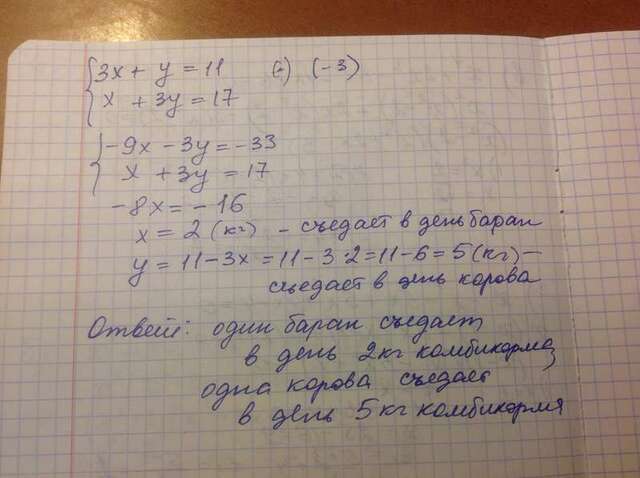 3x + y = 11 (·) (-3)
x + 3y = 17
-9x - 3y = -33
x + 3y = 17
-8x = -16
x = 2 (кг) - съедает в день баран
y = 11 - 3x = 11 - 3·2 = 11 - 6 = 5 (кг) -
съедает в день корова
Ответ: один баран съедает
в день 2кг комбикорма,
одна корова съедает
в день 5кг комбикорма